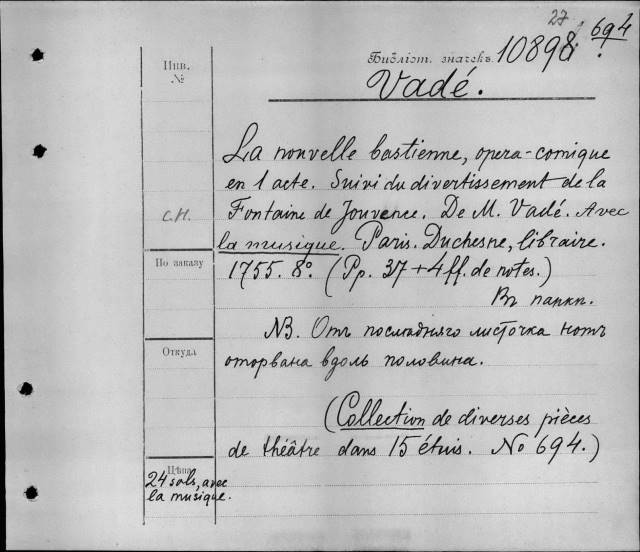 27
694
Инв.
№
Библіот. значекъ 10898
Vadé.
La nouvelle bastienne, opera-comique
en 1 acte. Suivi du divertissement de la
С.Н.
Fontaine de Jouvence. De M. Vadé. Avec
la musique. Paris. Duchesne, libraire.
По заказу
1755. 8º. (Pp. 37 + 4 ff. de notes.)
Въ папкп.
NB. Отъ послѣдняго листочка нотъ
Откуда
оторвана вдоль половина.
(Collection de diverses pièces
de théâtre dans 15 étuis. No 694.)
Цѣна
24 sols, avec
la musique.